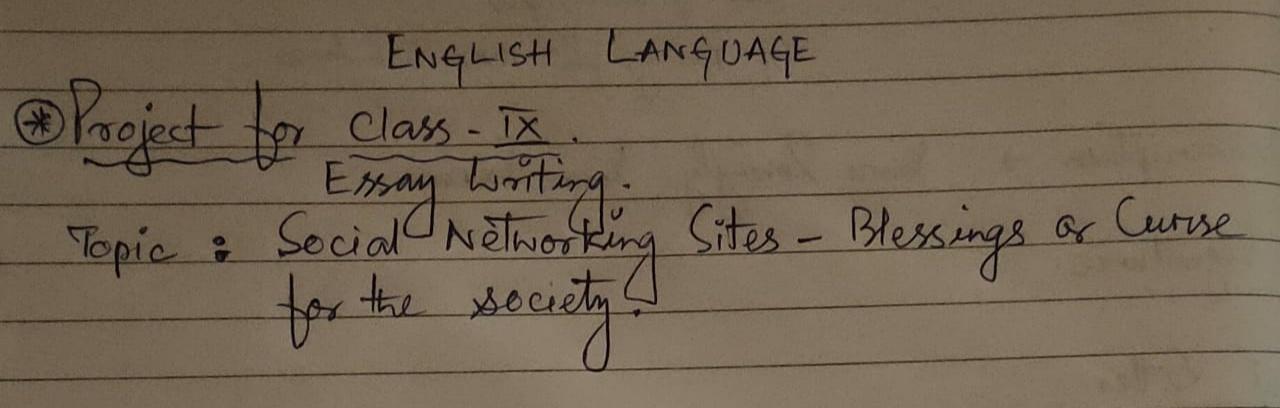 ENGLISH LANGUAGE
Project for Class - IX.
Essay Writing.
Topic : Social Networking Sites - Blessings or Curse
for the society?